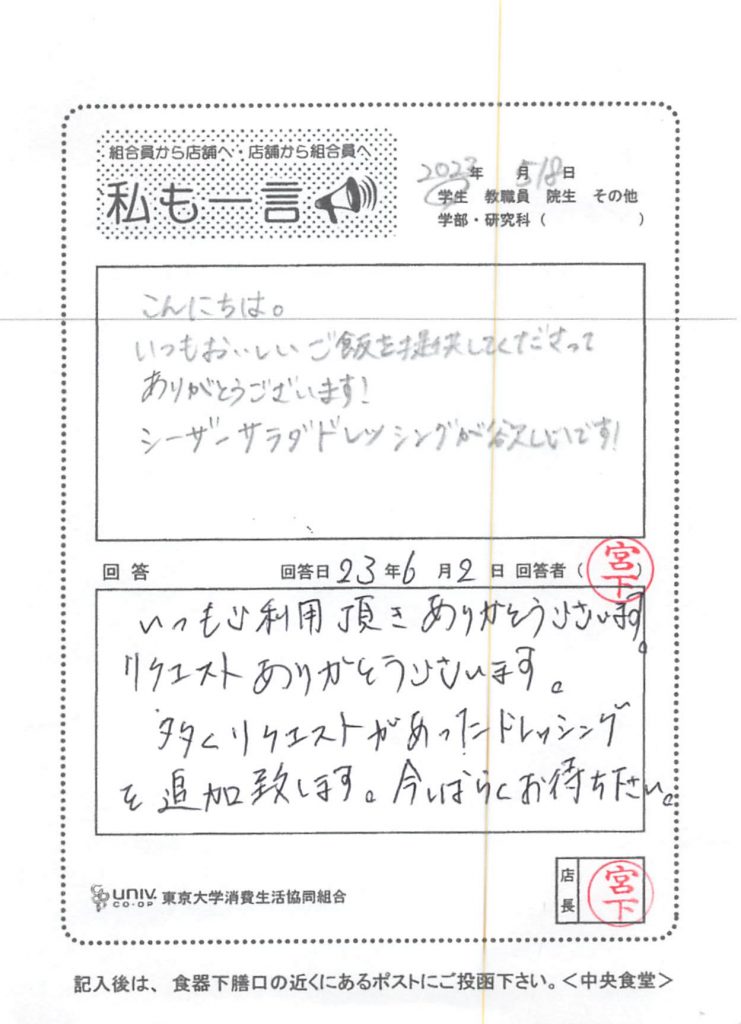 組合員から店舗へ・店舗から組合員へ
私も一言
2023年 5月18日
学生 教職員 院生 その他
学部・研究科（ ）
こんにちは。
いつもおいしいご飯を提供してくださって
ありがとうございます!
シーザーサラダドレッシングが欲しいです!
回答 回答日 23年6月2日 回答者（宮下）
いつもご利用頂きありがとうございます。
リクエストありがとうございます。
多くリクエストがあったドレッシング
を追加致します。今しばらくお待ち下さい。
店長 宮下
UNIV. CO-OP 東京大学消費生活協同組合
記入後は、食器下膳口の近くにあるポストにご投函下さい。＜中央食堂＞